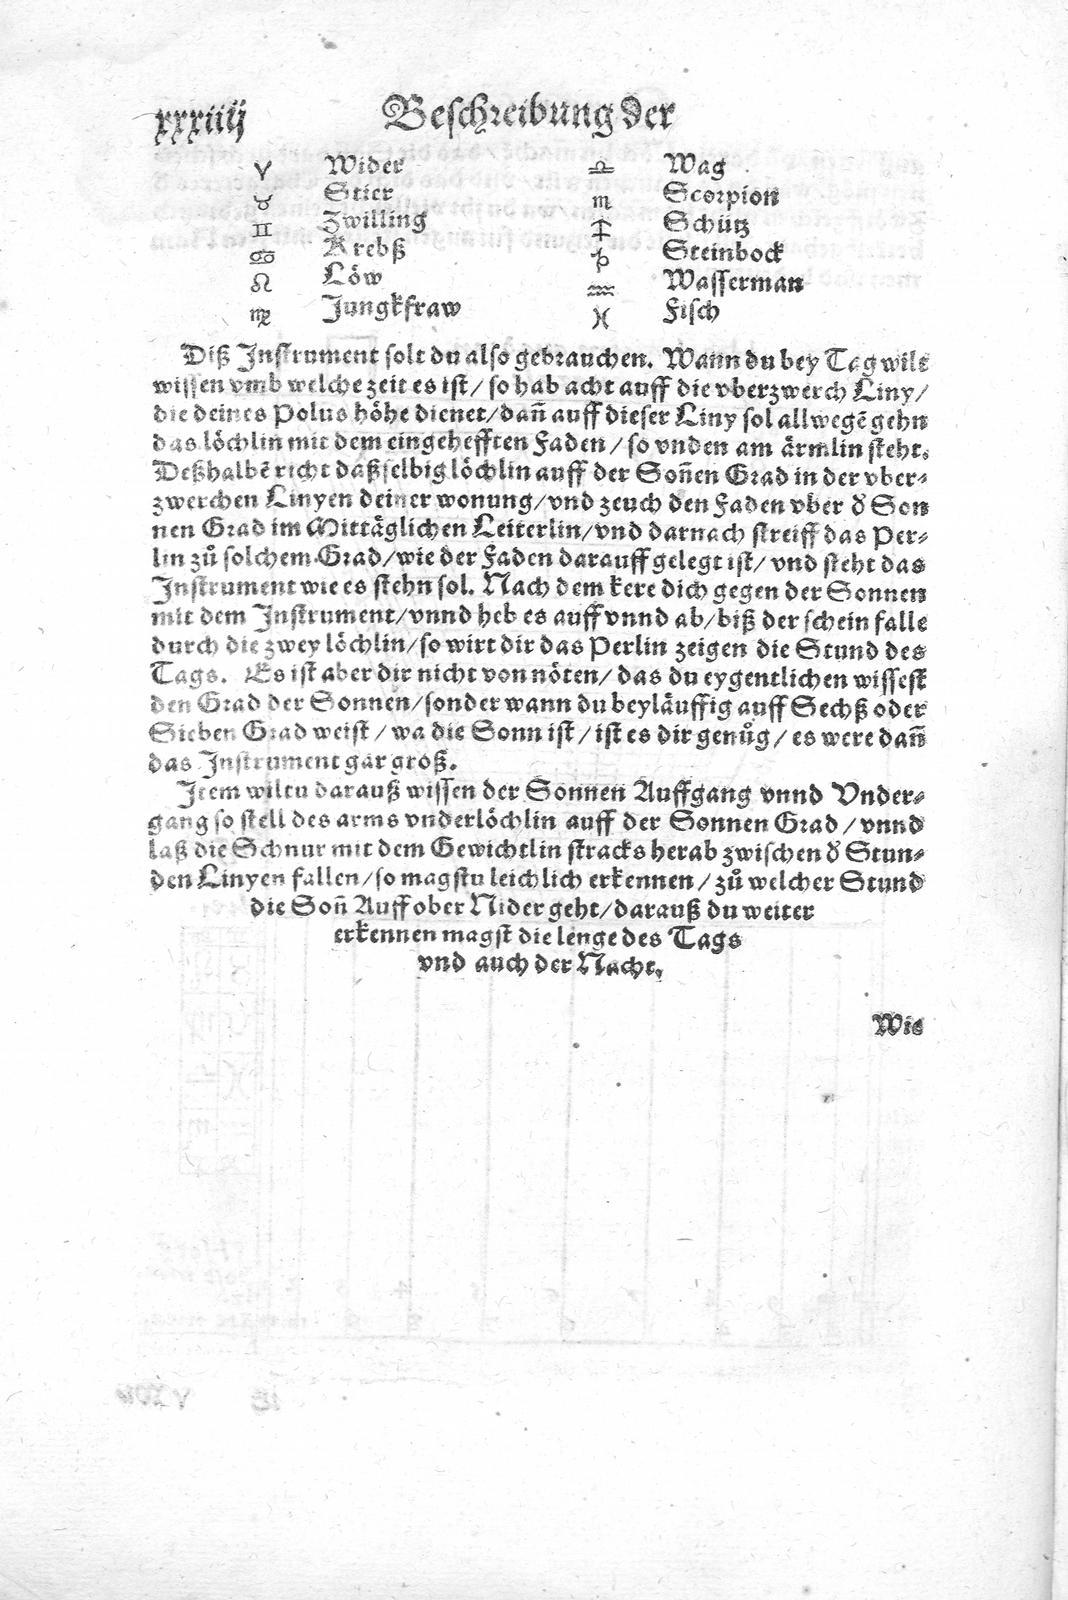 xxxiiij Beschreibung der
♈ Wider ♎ Wag
♉ Stier ♏ Scorpion
♊ Zwilling ♐ Schütz
♋ Krebß ♑ Steinbock
♌ Löw ♒ Wasserman
♍ Jungkfraw ♓ Fisch
Diß Instrument solt du also gebrauchen. Wann du bey Tag wilt
wissen vmb welche zeit es ist/ so hab acht auff die vberzwerch Liny/
die deines Polus höhe dienet/ dañ auff dieser Liny sol allwegẽ gehn
das löchlin mit dem eingehefften Faden/ so vnden am ärmlin steht.
Deßhalbẽ richt daßselbig löchlin auff der Soñen Grad in der vber⸗
zwerchen Linyen deiner wonung/ vnd zeuch den Faden vber d̕ Son
nen Grad im Mittäglichen Leiterlin/ vnd darnach streiff das Per⸗
lin zů solchem Grad/ wie der Faden darauff gelegt ist/ vnd steht das
Instrument wie es stehn sol. Nach dem kere dich gegen der Sonnen
mit dem Instrument/ vnnd heb es auff vnnd ab/ biß der schein falle
durch die zwey löchlin/ so wirt dir das Perlin zeigen die Stund des
Tags. Es ist aber dir nicht von nöten/ das du eygentlichen wissest
den Grad der Sonnen/ sonder wann du beyläuffig auff Sechß oder
Sieben Grad weist/ wa die Sonn ist/ ist es dir genůg/ es were dañ
das Instrument gar groß.
Item wiltu darauß wissen der Sonnen Auffgang vnnd Vnder⸗
gang so stell des arms vnderlöchlin auff der Sonnen Grad/ vnnd
laß die Schnur mit dem Gewichtlin stracks herab zwischen d̕ Stun⸗
den Linyen fallen/ so magstu leichlich erkennen/ zů welcher Stund
die Soñ Auff ober Nider geht/ darauß du weiter
erkennen magst die lenge des Tags
vnd auch der Nacht.
Wie